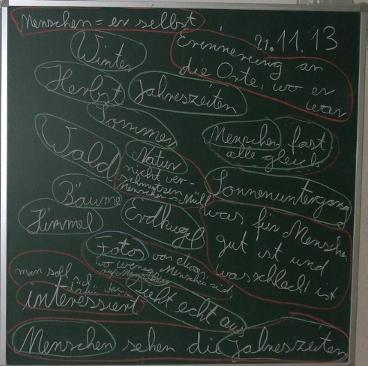 Menschen = er selbst
21.11.13
Erinnerung an
die Orte, wo er
war
Winter
Herbst
Jahreszeiten
Sommer
Menschen fast
alle gleich
Wald
Natur
nicht ver-
schmutzen
Müll
Sonnenuntergang
Bäume
Himmel
Erdkugel
was für Mensche
gut ist und
was schlecht ist
Fotos
von etwas,
wo wenige Menschen sind
man soll
sich
interessiert
sieht echt aus
Menschen sehen die Jahreszeiten